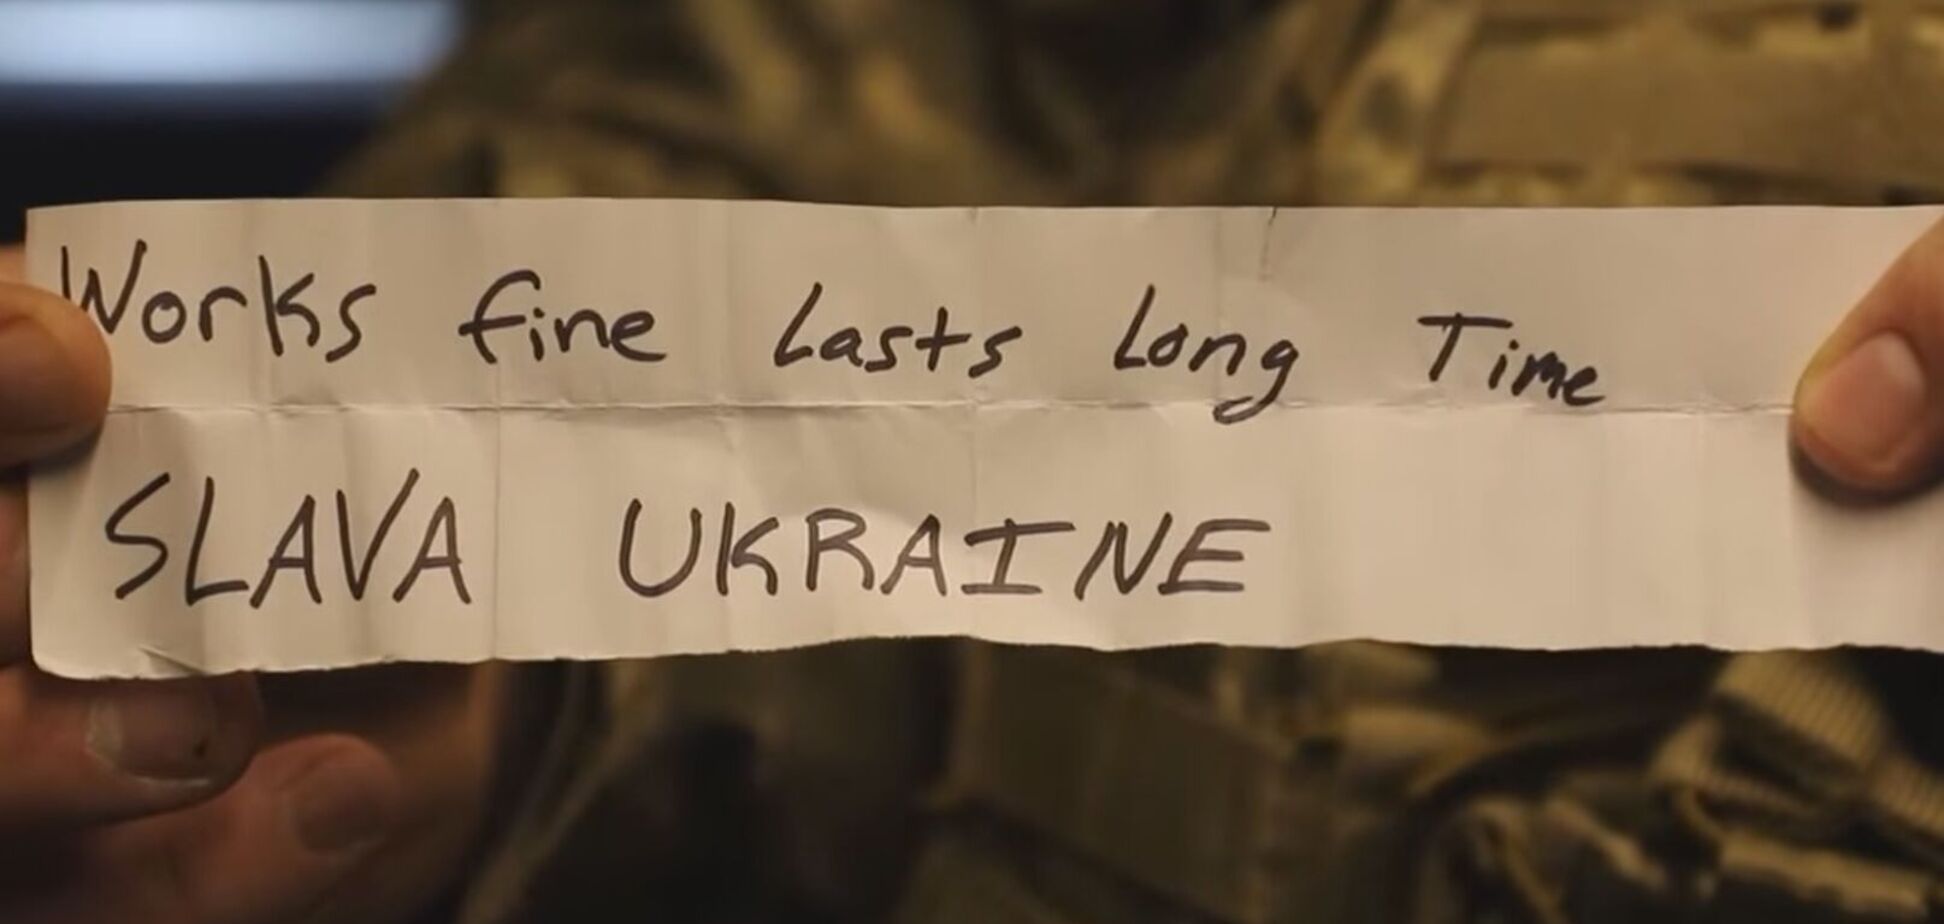 Works fine Lasts Long Time
SLAVA UKRAINE